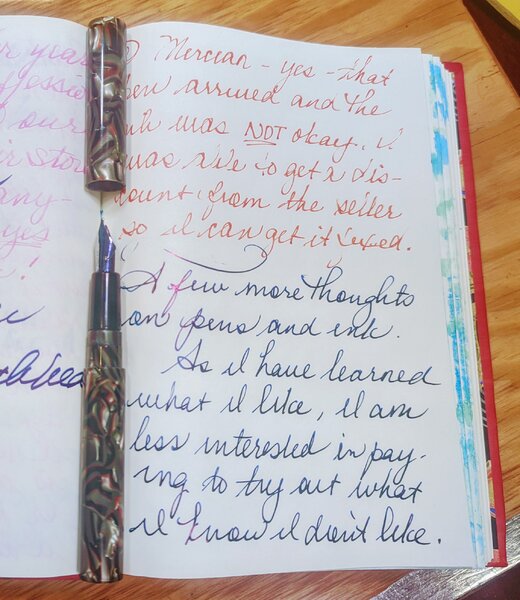 years
our
any-
yes
!
Mercian - yes - that
pen arrived and the
nib was NOT okay. I
was able to get a dis-
count from the seller
so I can get it fixed.
A few more thoughts
on pens and ink.
As I have learned
what I like, I am
less interested in pay-
ing to try out what
I know I don't like.